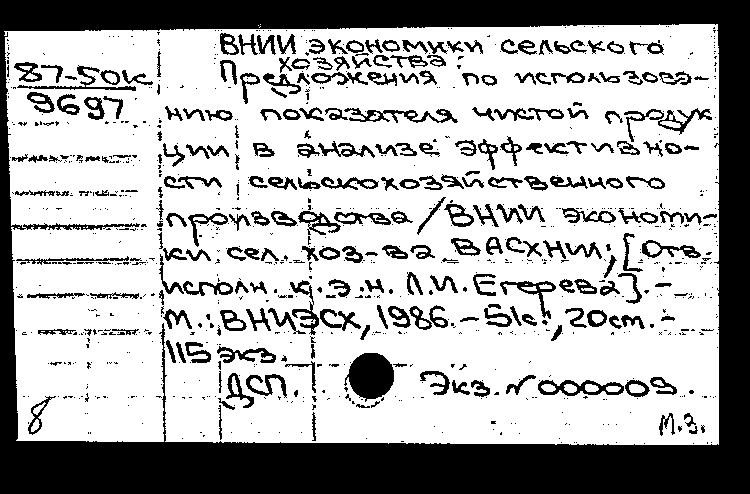 ВНИИ экономики сельского
хозяйства.
87-50к
9697
Предложения по использова-
нию показателя чистой продук
ции в анализе эффективно-
сти сельскохозяйственного
производства / ВНИИ экономи-
ки сел. хоз-ва ВАСХНИЛ; [Отв.
исполн. к.э.н. Л.И. Егерева]. -
М.: ВНИЭСХ, 1986. - 51с., 20см. -
115 экз.
ДСП. Экз. № 000009.
8
М.З.